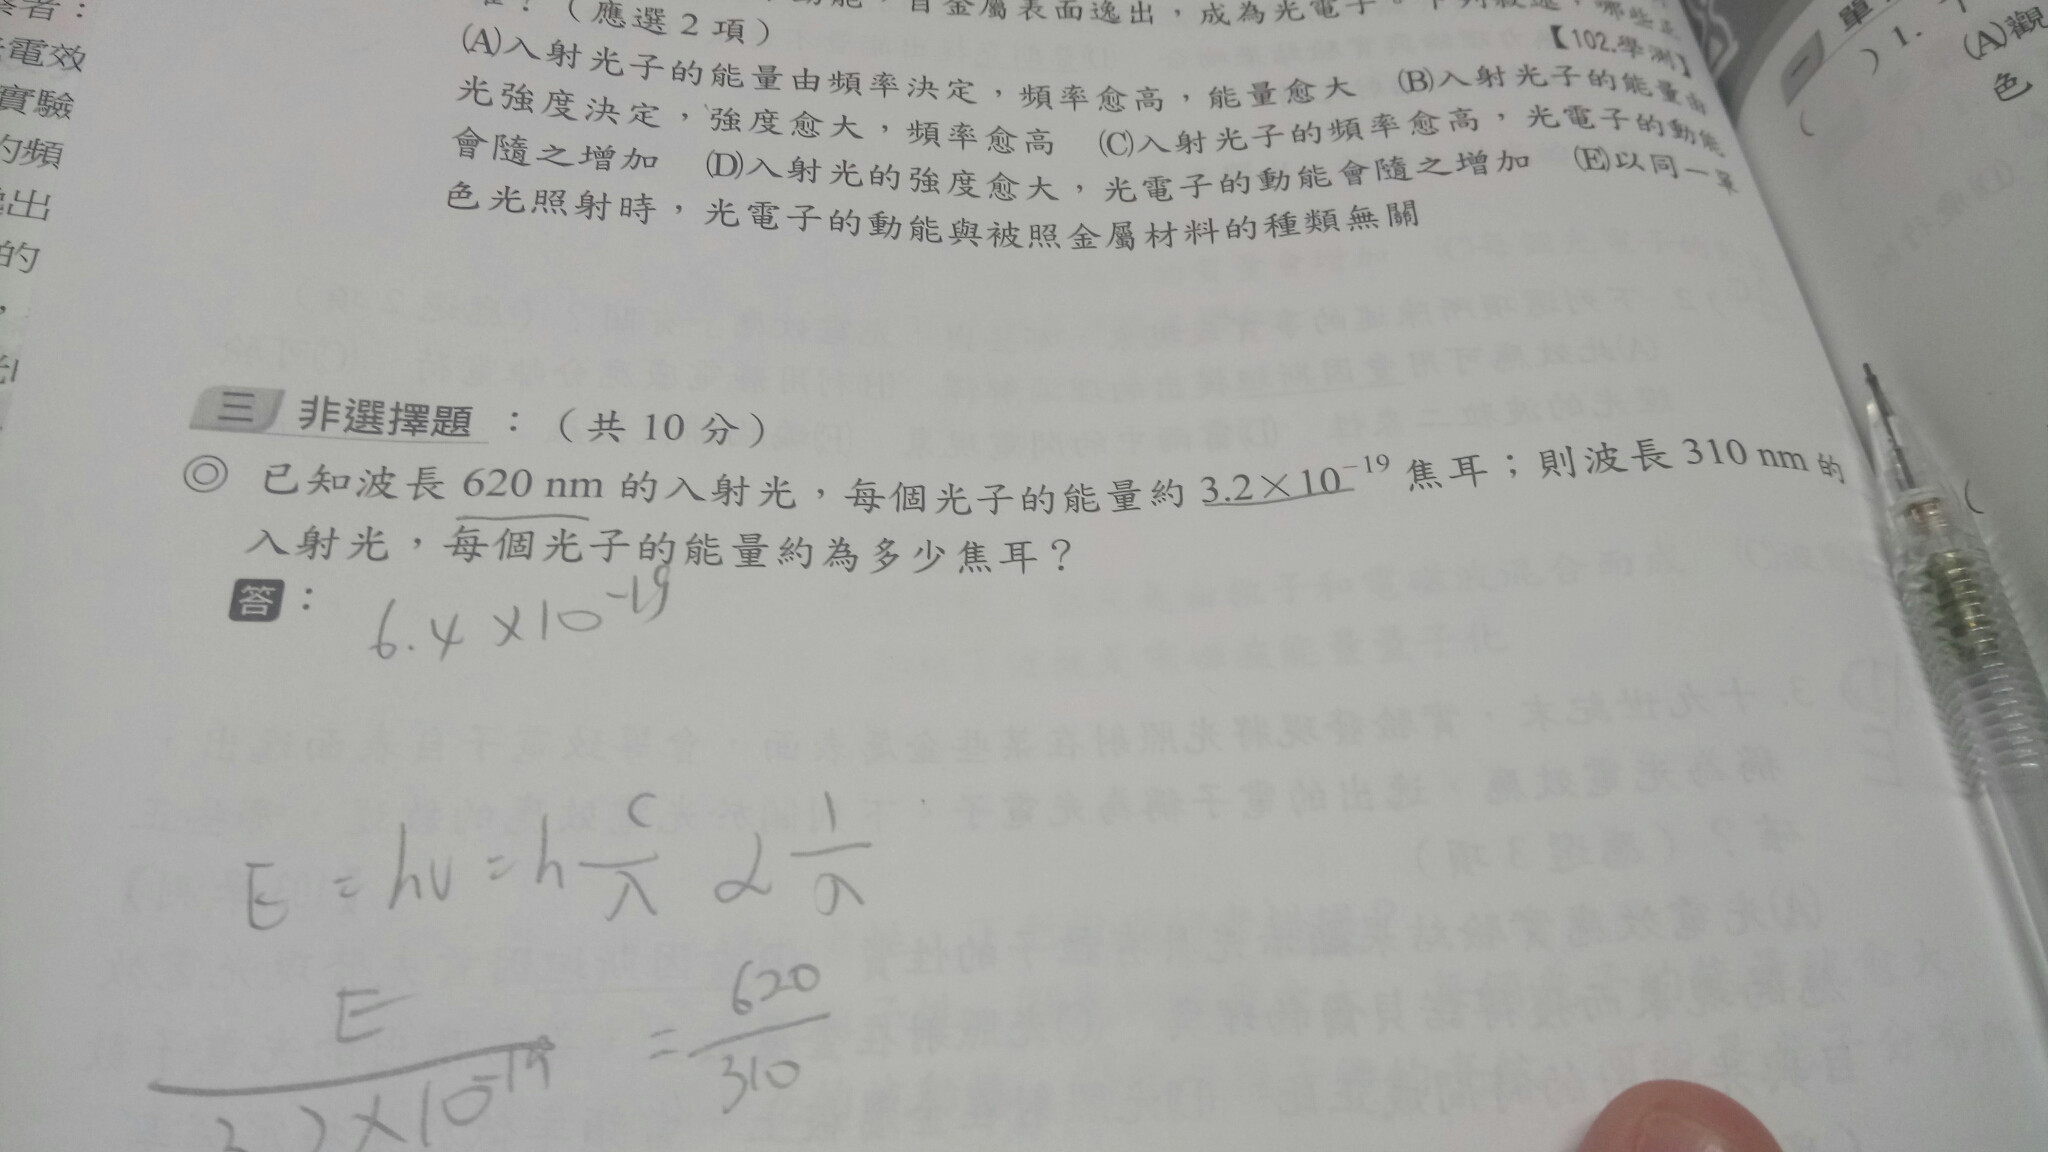 者：
電效
實驗
的頻
出
的
？（應選2項）
自金屬表面逸出，成為光電子。
【102.學測】
(A)入射光子的能量由頻率決定，頻率愈高，能量愈大 (B)入射光子的能量由
光強度決定，強度愈大，頻率愈高 (C)入射光子的頻率愈高，光電子的動能
會隨之增加 (D)入射光的強度愈大，光電子的動能會隨之增加 (E)以同一單
色光照射時，光電子的動能與被照金屬材料的種類無關
三 非選擇題：（共10分）
◎ 已知波長 620 nm 的入射光，每個光子的能量約 3.2×10⁻¹⁹ 焦耳；則波長 310 nm 的
入射光，每個光子的能量約為多少焦耳？
答：
6.4×10⁻¹⁹
E = hν = h c/λ ∝ 1/λ
E/3.2×10⁻¹⁹ = 620/310
一 單
( ) 1.
(A)觀
色
(